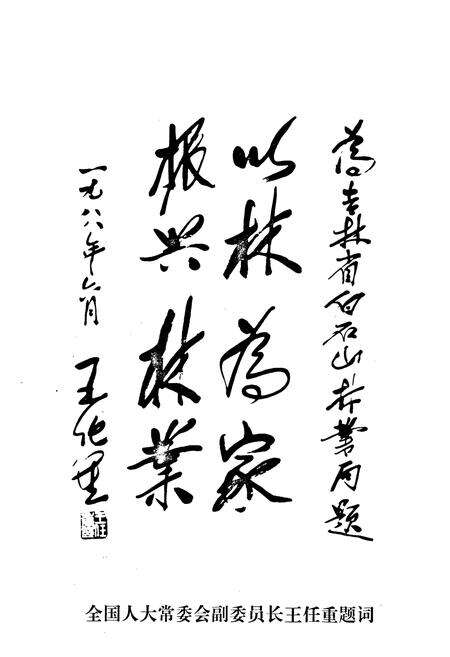 為吉林省白石山林業局題
以林為家
振兴林業
一九八八年六月
王任重
全国人大常委会副委员长王任重题词